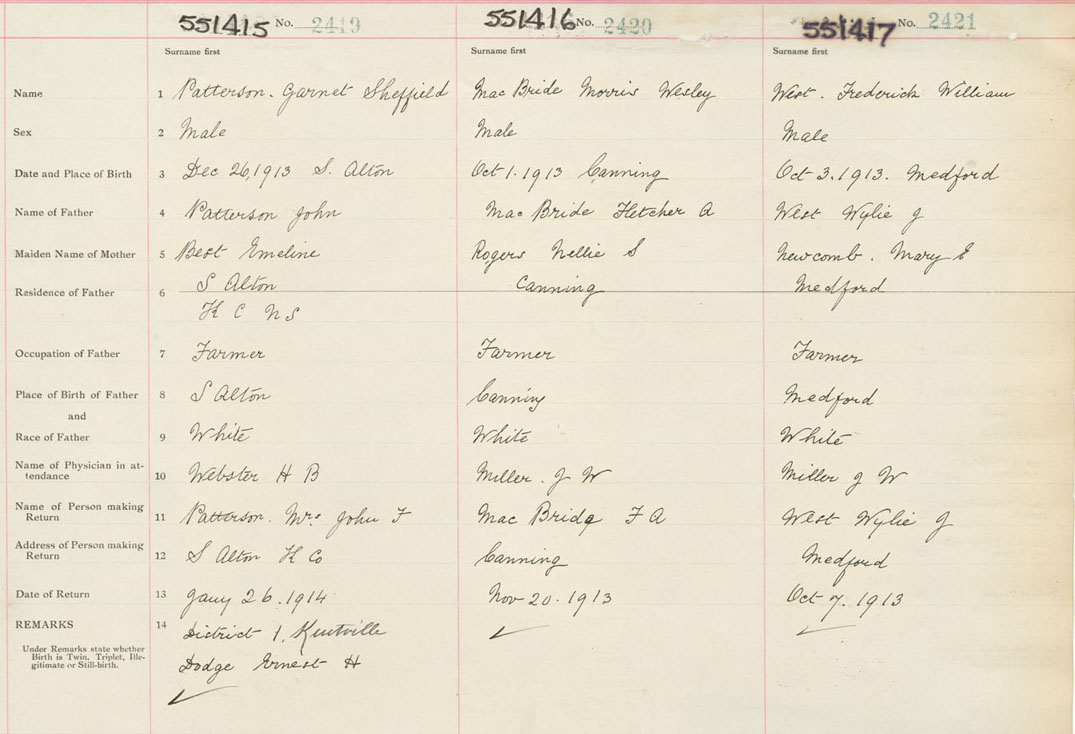 551415 No. 2419 551416 No. 2420 551417 No. 2421
Surname first Surname first Surname first
Name 1 Patterson. Garnet Sheffield Mac Bride Morris Wesley West. Frederick William
Sex 2 Male Male Male
Date and Place of Birth 3 Dec 26, 1913 S. Alton Oct 1. 1913 Canning Oct 3. 1913. Medford
Name of Father 4 Patterson John Mac Bride Fletcher A West Wylie J
Maiden Name of Mother 5 Best Emeline Rogers Nellie S Newcomb. Mary E
Residence of Father 6 S Alton Canning Medford
K C N S
Occupation of Father 7 Farmer Farmer Farmer
Place of Birth of Father 8 S Alton Canning Medford
and
Race of Father 9 White White White
Name of Physician in at-
tendance 10 Webster H B Miller. J W Miller J W
Name of Person making
Return 11 Patterson. Mrs John F Mac Bride F A West Wylie J
Address of Person making
Return 12 S Alton K Co Canning Medford
Date of Return 13 Jany 26. 1914 Nov 20. 1913 Oct 7. 1913
REMARKS 14 District 1, Kentville
Under Remarks state whether
Birth is Twin, Triplet, Ille-
gitimate or Still-birth.
Dodge Ernest H